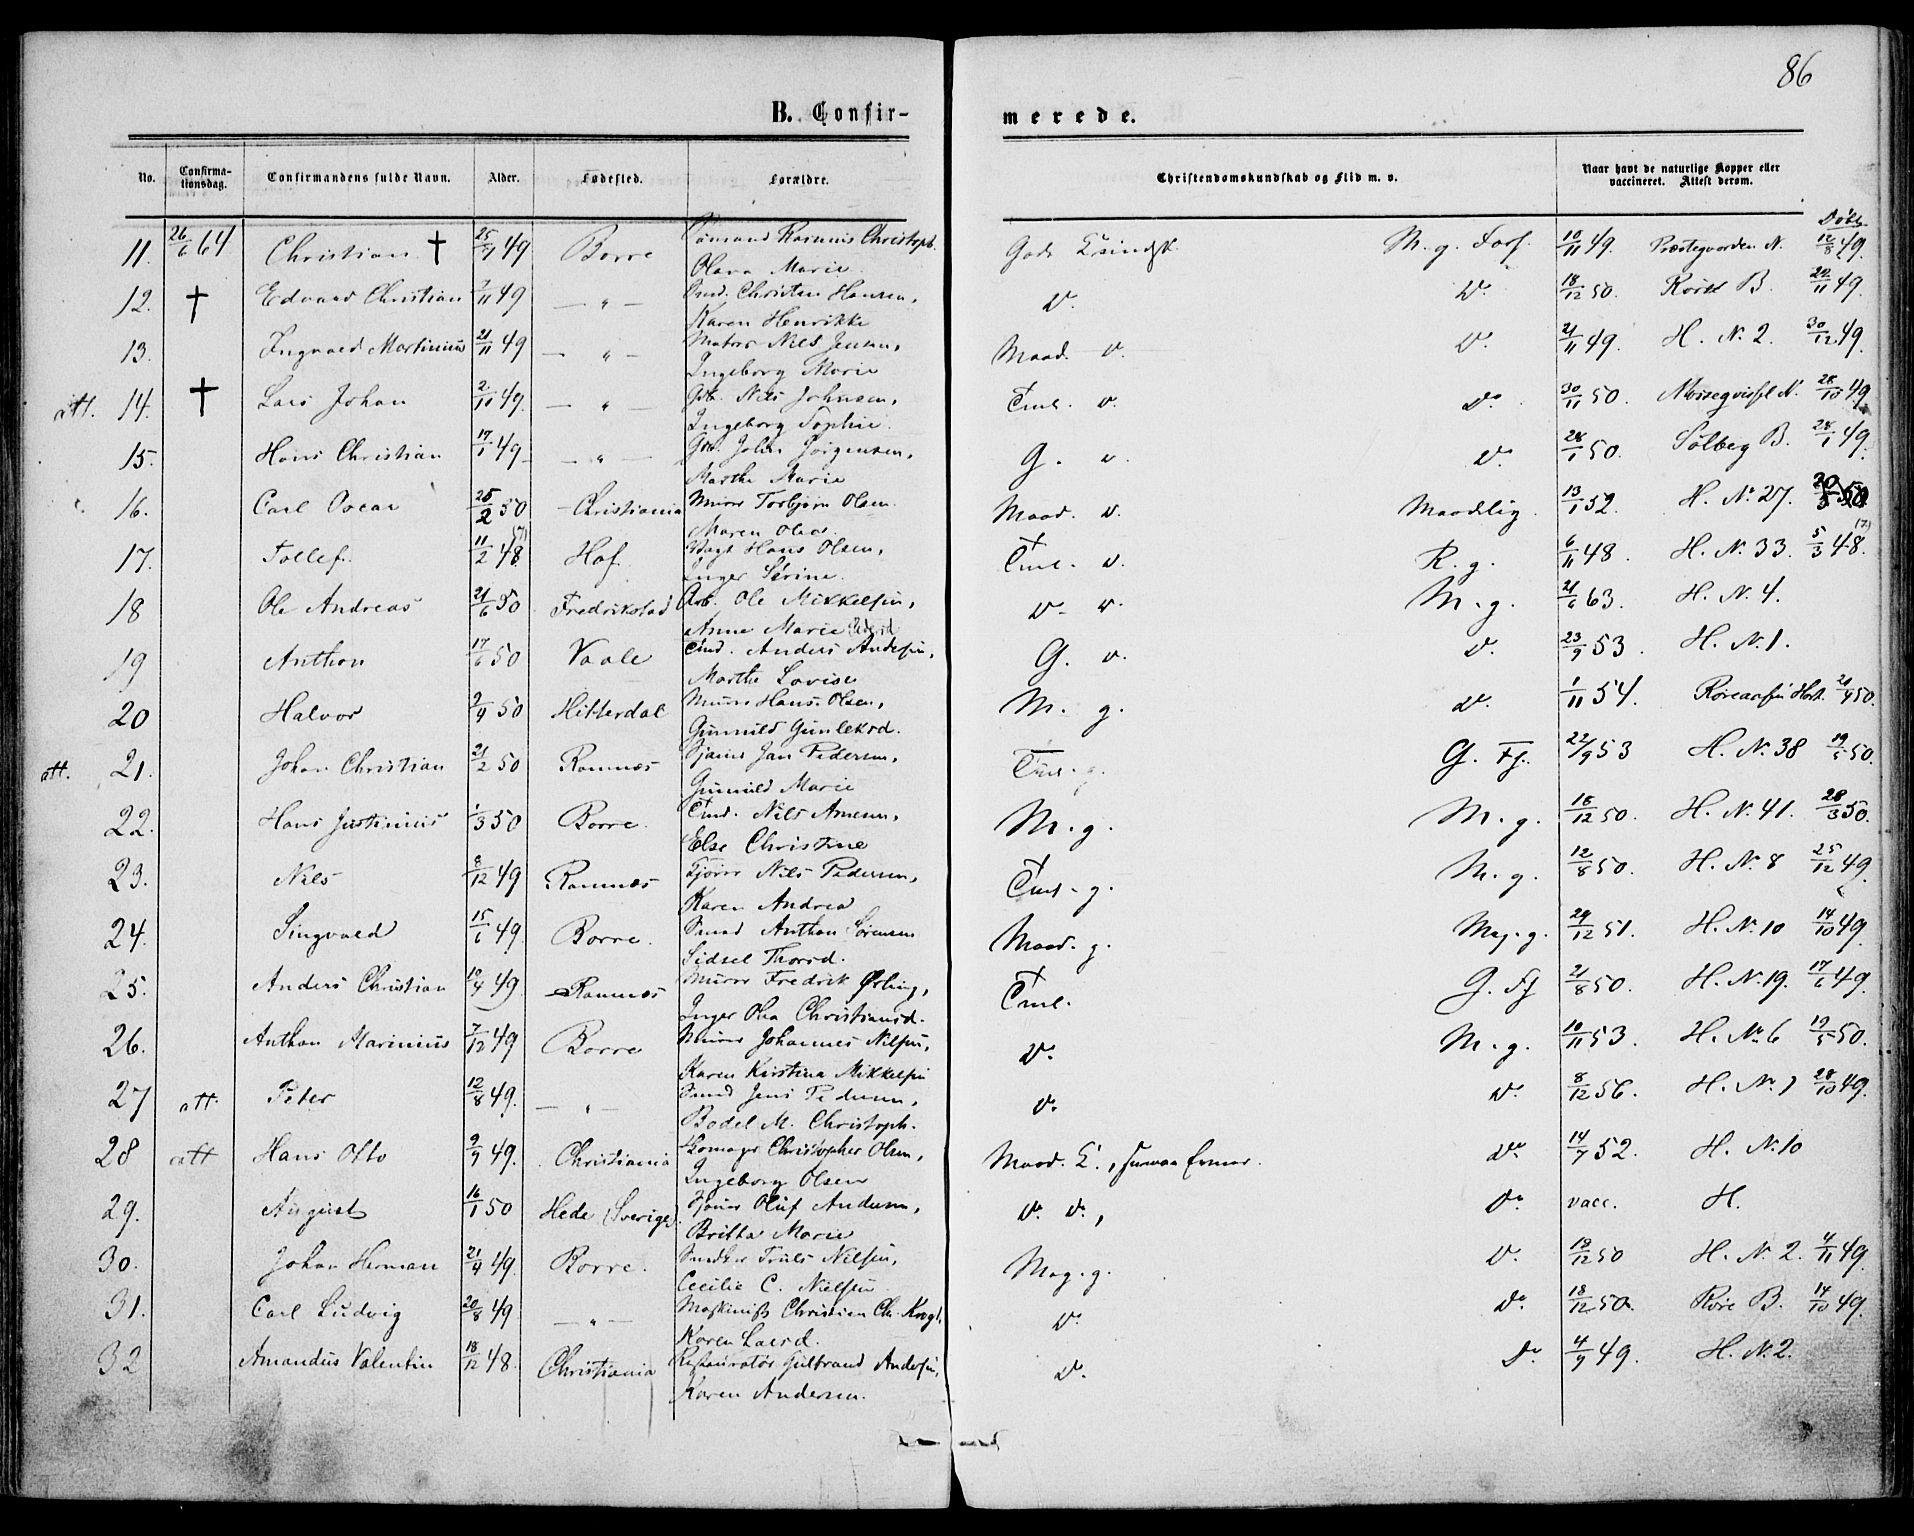 86
B. Confir-
merede.
No.
Confirma-
tionsdag.
Confirmandens fulde Navn.
Alder.
Fødested.
Forældre.
Christendomskundskab og Flid m. v.
Naar havt de naturlige Kopper eller
vaccineret. Attest derom.
Døbt
11. 26/6 64 Christian † 25/7 49 Borre Sømand Rasmus Christoph. M. g. 10/11 49. Præstegaarden N. 12/8 49.
Olava Marie
12. † Edvard Christian 7/11 49 — " — Christen Hansen, D. D. 18/12 50. Røre B. 49.
Karen Henrikke
13. Ingvald Martinius 21/11 49 — " — Matros Nils Jensen, Maad. v. D. 21/11 49. H. N. 2. 30/12 49.
Ingeborg Marie
att. 14. † Lars Johan 2/10 49. — " — Nils Johnsen, v. D. 30/11 50. 28/10 49
Ingeborg Sophie.
15. Hans Christian 17/1 49 — " — Johan Jørgensen, G. v. D. 28/1 50. Solberg B. 28/1 49.
Marthe Marie
16. Carl Oscar 25/2 50 Christiania Murer Torbjørn Olsen. Maad. v. Maadelig 13/1 52. H. N. 27. 50
Maren Olea.
17. Tollef. 11/2 48 (?) Hof. Hans Olsen, v. R. g. 6/11 48. H. N. 33. 5/3 48. (?)
Inger Sirine.
18 Ole Andreas 21/6 50 Fredrikstad Arb. Ole Mikkelsen, D. v. M. g. 21/6 63. H. N. 4.
Anne Marie
19 Anthon 17/6 50 Vaale Anders Andersen, G. v. D. 23/9 53. H. N. 1.
Marthe Lovise
20 Halvor 2/4 50 Hitterdal Murer Hans Olsen, M. g. D. 1/11 54. 21/4 50.
Gunnild Gunleksd.
att. 21. Johan Christian 21/2 50 Ramnæs Jan Pedersen, g. G. Fl. 22/9 53 H. N. 38 19/5 50.
Gunnild Marie
22. Hans Justinius 1/3 50 Borre. Nils Arnesen, M. g. M. g. 18/12 50. H. N. 41. 28/3 50.
Else Christine
23. Nils 8/12 49 Ramnæs Nils Pedersen, g. M. g. 12/8 50. H. N. 8 25/12 49.
Karen Andrea
24. Singvald 15/6 49. Borre. Smed Anthon Sørensen Maad. g. Meg. g. 29/12 51. H. N. 10 14/10 49.
Sidsel Thorsd.
25. Anders Christian 10/4 49 Ramnæs Murer Fredrik Ørling, G. Fl 21/8 50. H. N. 19. 17/6 49.
Inger Olea Christiansd.
26. Anthon Marinius 7/12 49 Borre Murer Johannes Nilsen, D. M. g. 10/11 53. H. N. 6 19/5 50.
Karen Kirstina Mikkelsen
27 att. Peter 12/8 49. — " — Smed Jens Pedersen, D. D. 8/12 56. H. N. 28/10 49.
Bodel M. Christoph.
28 att Hans Otto 9/9 49. Christiania Skomager Christopher Olsen, Maad. D. 14/7 52. H. N. 10
Ingeborg Olsen
29. August 16/1 50 Hede (Sverige). Oluf Andersen, D. D., D. vacc. H.
Britta Marie
30. Johan Herman 21/9 49. Borre. Snedker Truls Nilsen, Meg. g. D. 18/12 50 H. N. 2. 4/11 49.
Cecilie C. Nielsen
31. Carl Ludvig 20/8 49 — " — Maskinist Christian Chr. D. D. 18/12 50. Røre B. 14/10 49.
Karen Larsd.
32 Amandus Valentin 18/12 48. Christiania Restauratør Gulbrand Andersen, D. D. 4/9 49. H. N. 2.
Karen Andersen.